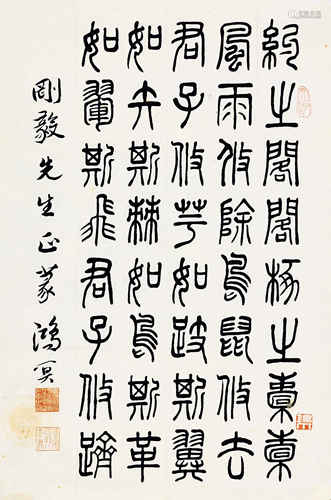 約之閣閣椓之橐橐
風雨攸除鳥鼠攸去
君子攸芋如跂斯翼
如矢斯棘如鳥斯革
如翬斯飛君子攸躋
剛毅先生正篆 鴻冥